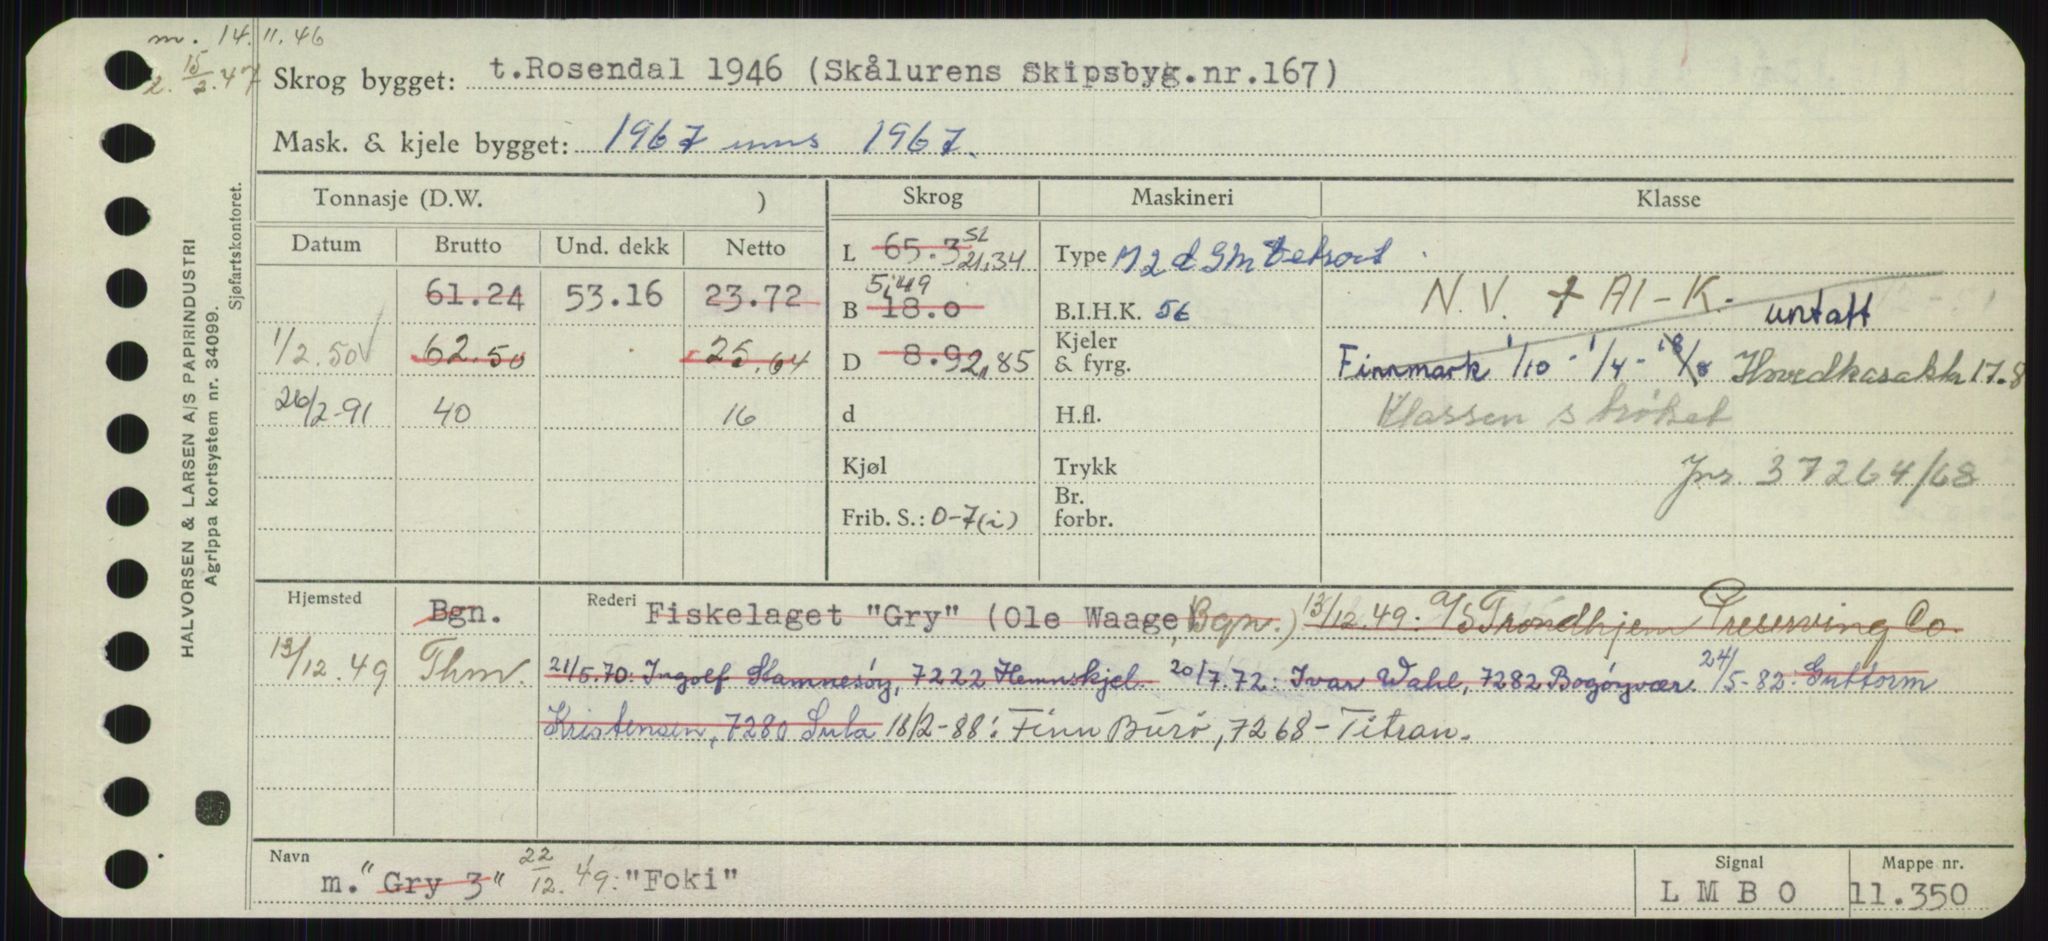 m. 14.11.46
2. 15/2.47
Skrog bygget: t.Rosendal 1946 (Skålurens Skipsbyg.nr.167)
Mask. & kjele bygget: 1967 1967.
HALVORSEN & LARSEN A/S PAPIRINDUSTRI
Agrippa kortsystem nr. 34099.
Sjøfartskontoret.
Tonnasje (D.W. )
Skrog
Maskineri
Klasse
Datum Brutto Und. dekk Netto
61.24 53.16 23.72
1/2.50 62.50 25.64
26/2-91 40 16
L 65.3 SL 21,34
B 18.0 5,49
D 8.9 2,85
d
Kjøl
Frib. S.: 0-7(i)
Type M 2 d GM Detroit
B.I.H.K. 56
Kjeler
& fyrg.
H.fl.
Trykk
Br.
forbr.
N.V. + A1-K. untatt
Finnmark 1/10 - 1/4 - 18/8 17.8
Klassen strøket
Jnr. 37264/68
Hjemsted Bgn. Rederi Fiskelaget "Gry" (Ole Waage, Bgn.) 13/12.49: A/S Trondhjem Preserving Co.
13/12.49 Thm. 21/5.70: Ingolf Stamnesøy, 7222 Hemnskjel. 20/7.72: Ivar Wahl, 7282 Bogøyvær. 24/5-82: Guttorm
Kristensen, 7280 Sula 18/2-88: Finn Burø, 7268-Titran.
Navn
m. "Gry 3" 22/12.49: "Foki"
Signal
L M B O
Mappe nr.
11.350